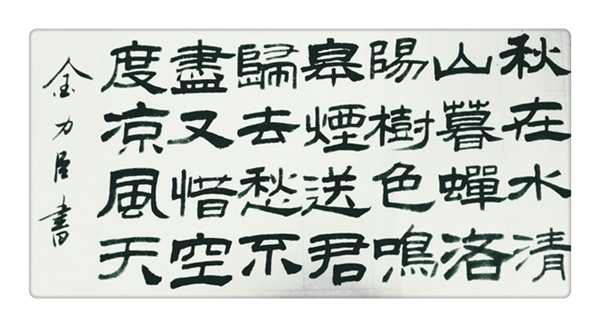 秋在水清
山暮蟬洛
陽樹色鳴
皋煙送君
歸去愁不
盡又惜空
度凉風天
金力臣書